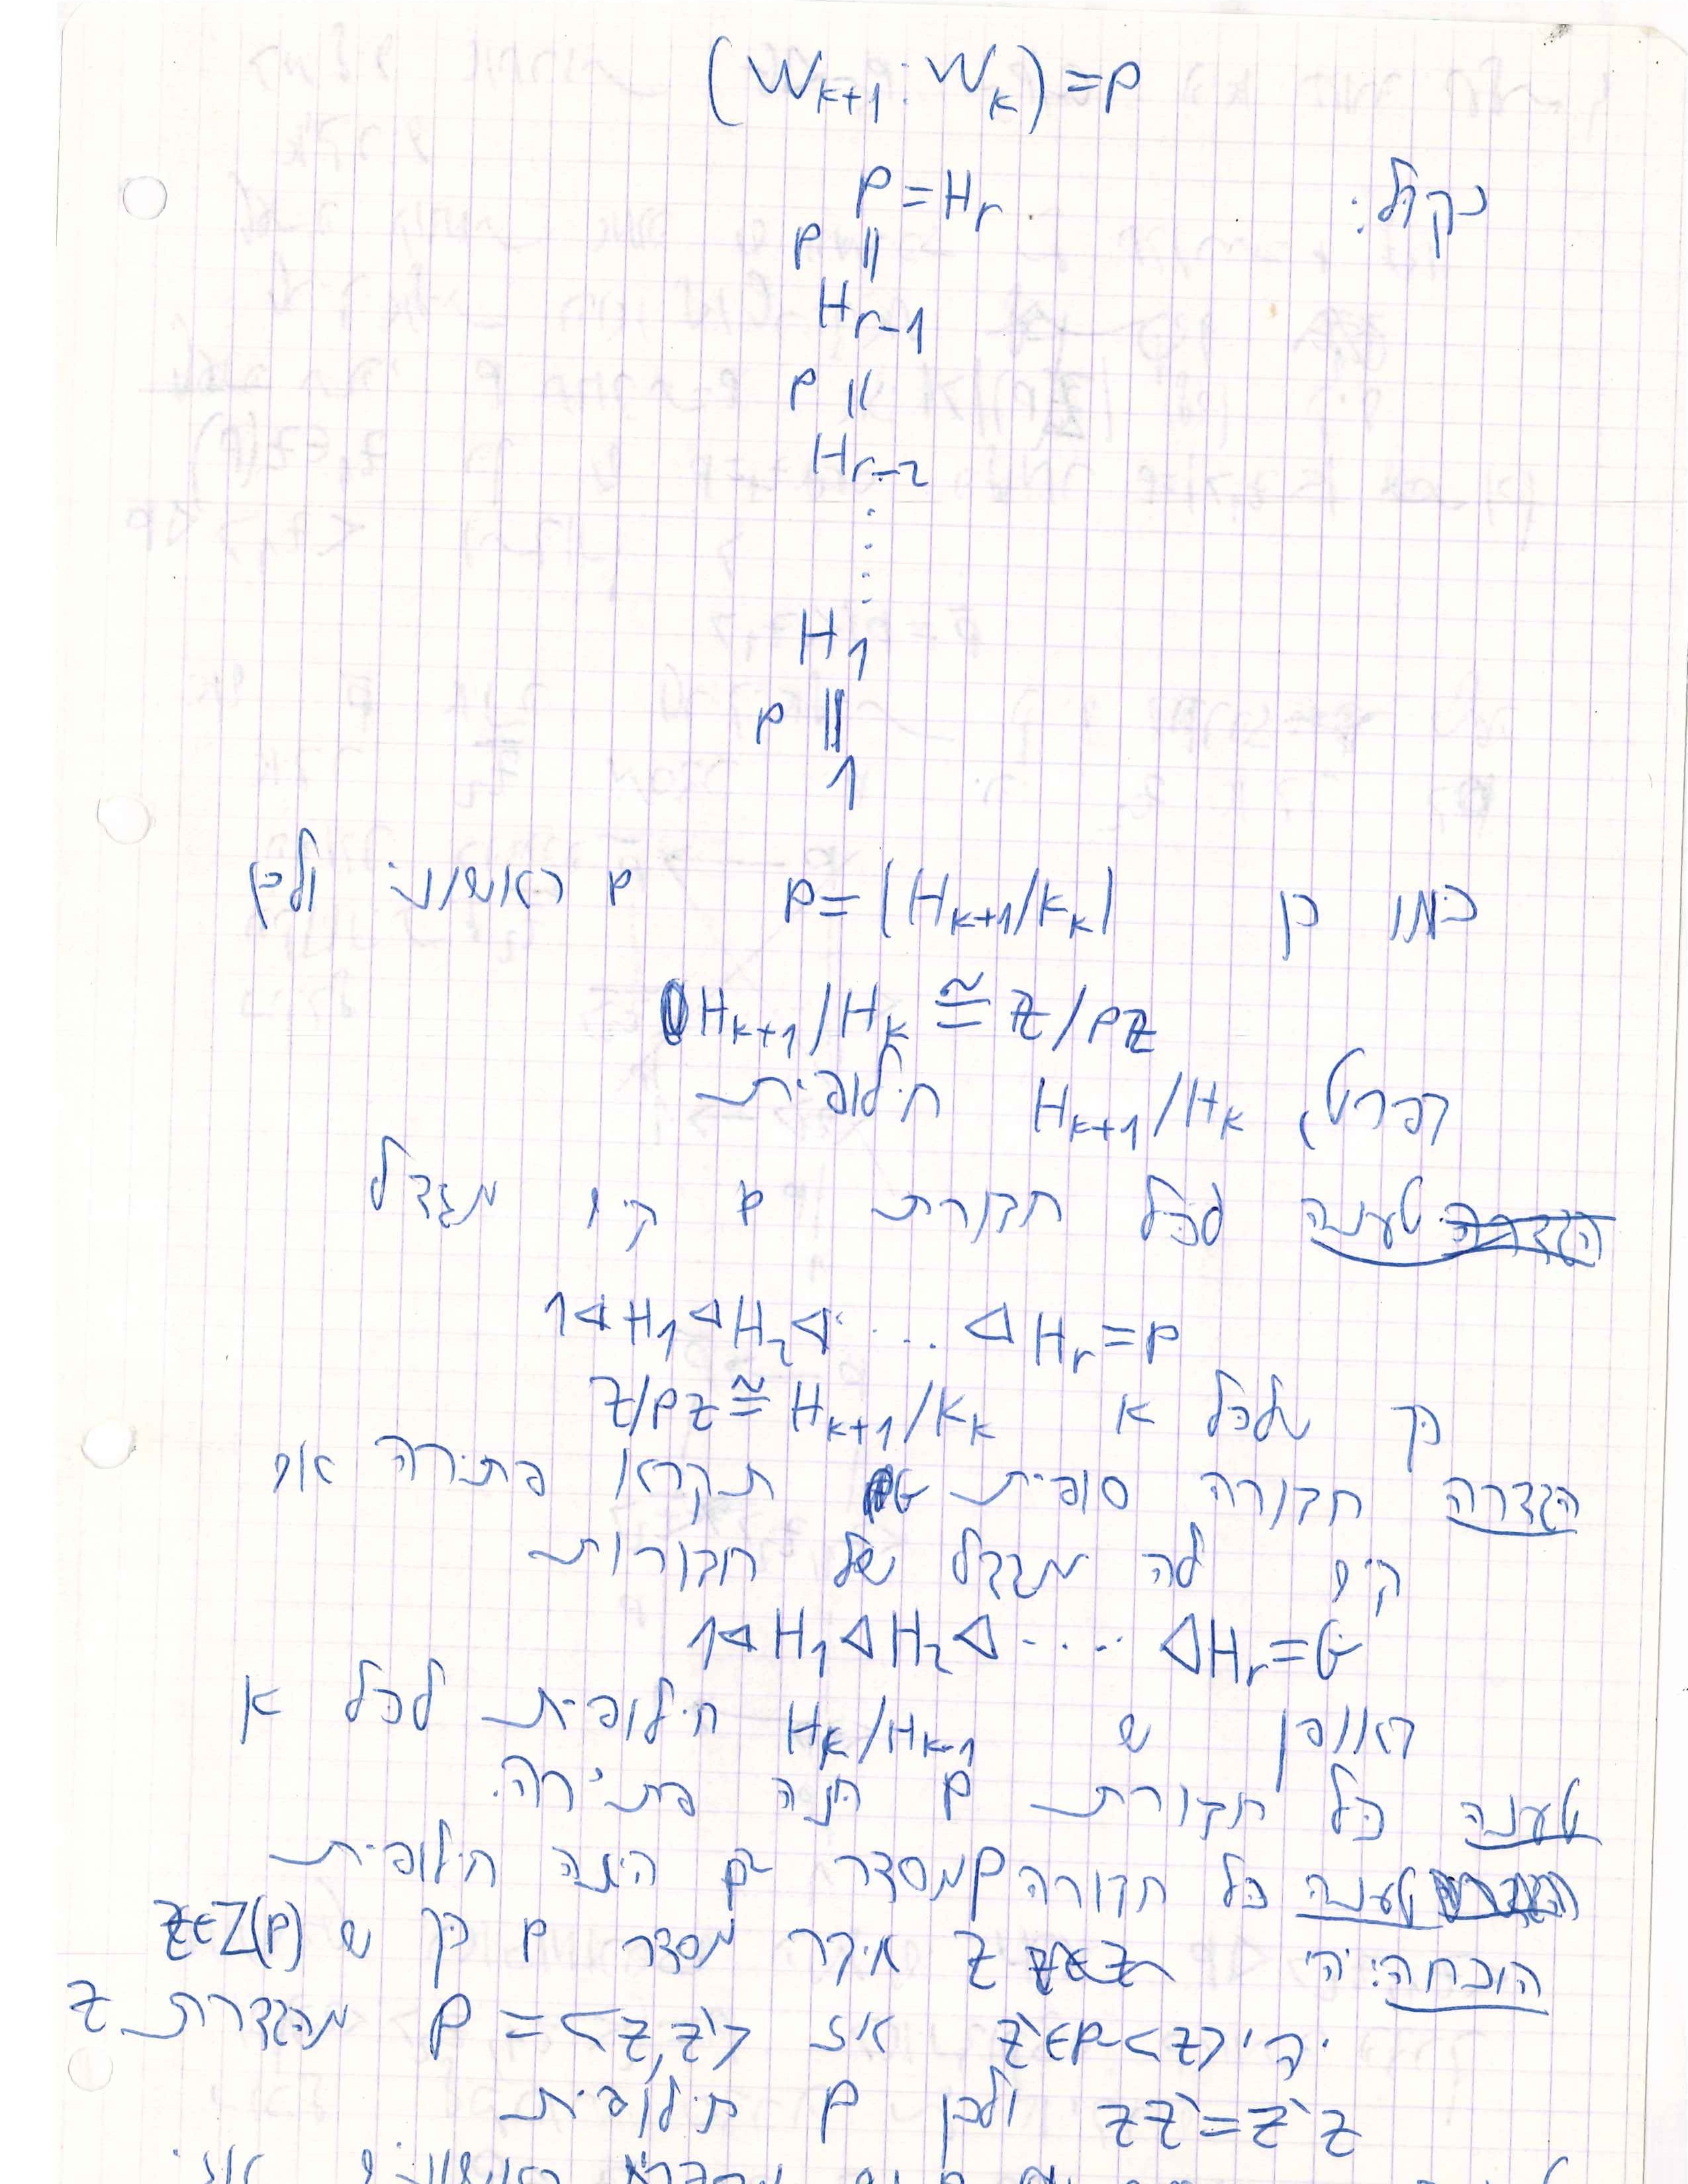 (W_{k+1}:W_k)=p
נקבל: P=H_r
p ||
H_{r-1}
p ||
H_{r-2}
⋮
H_1
p ||
1
כמו כן p=|H_{k+1}/K_k| p ראשוני ולכן
H_{k+1}/H_k ≅ Z/pZ
בפרט, H_{k+1}/H_k חילופית
טענה לכל חבורת p קיים מגדל
1◁H_1◁H_2◁... ◁H_r=P
כך שלכל k Z/pZ≅H_{k+1}/K_k
הגדרה חבורה סופית G תקרא פתירה אם
קיים לה מגדל של חבורות
1◁H_1◁H_2◁.... ◁H_r=G
באופן ש H_k/H_{k-1} חילופית לכל k
טענה כל חבורת p הינה פתירה.
טענה כל חבורה P מסדר p² הינה חילופית
הוכחה: יהי z איבר מסדר p כך ש z∈Z(P)
יהי z'∈P-<z> אז P=<z,z'> מהגדרת z
zz'=z'z ולכן P חילופית